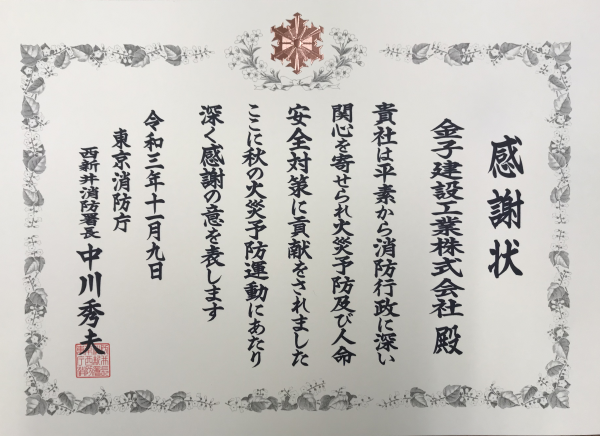 感謝状
金子建設工業株式会社 殿
貴社は平素から消防行政に深い
関心を寄せられ火災予防及び人命
安全対策に貢献をされました
ここに秋の火災予防運動にあたり
深く感謝の意を表します
令和三年十一月九日
東京消防庁
西新井消防署長 中川秀夫